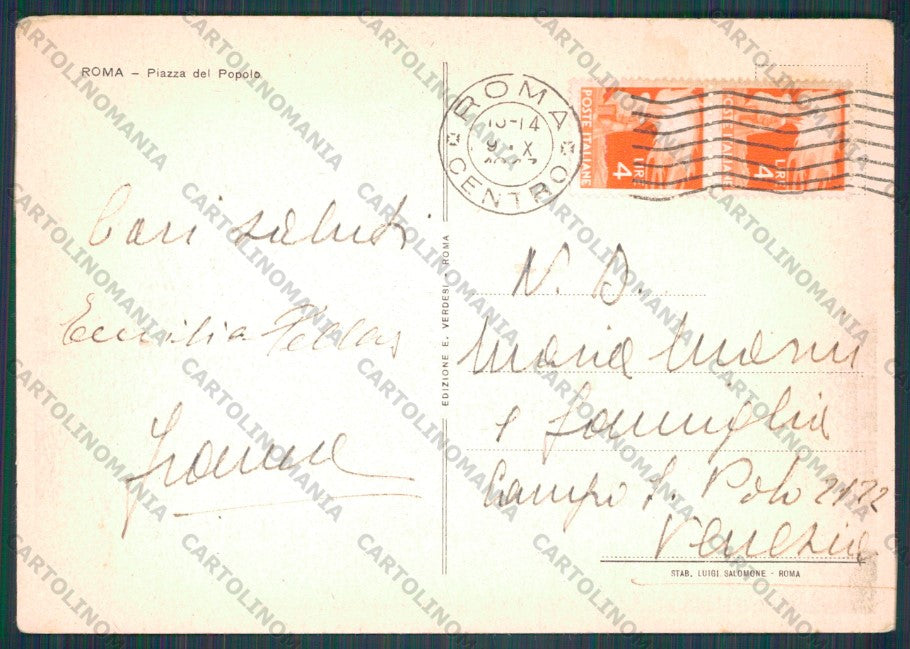 ROMA – Piazza del Popolo
Cari saluti
Emilia
EDIZIONE E. VERDESI - ROMA
ROMA
CENTRO
13-14
9 · X
POSTE ITALIANE
LIRE
4
POSTE ITALIANE
LIRE
4
N. D.
Maria
e famiglia
Campo S. Polo
Venezia
STAB. LUIGI SALOMONE - ROMA
CARTOLINOMANIA